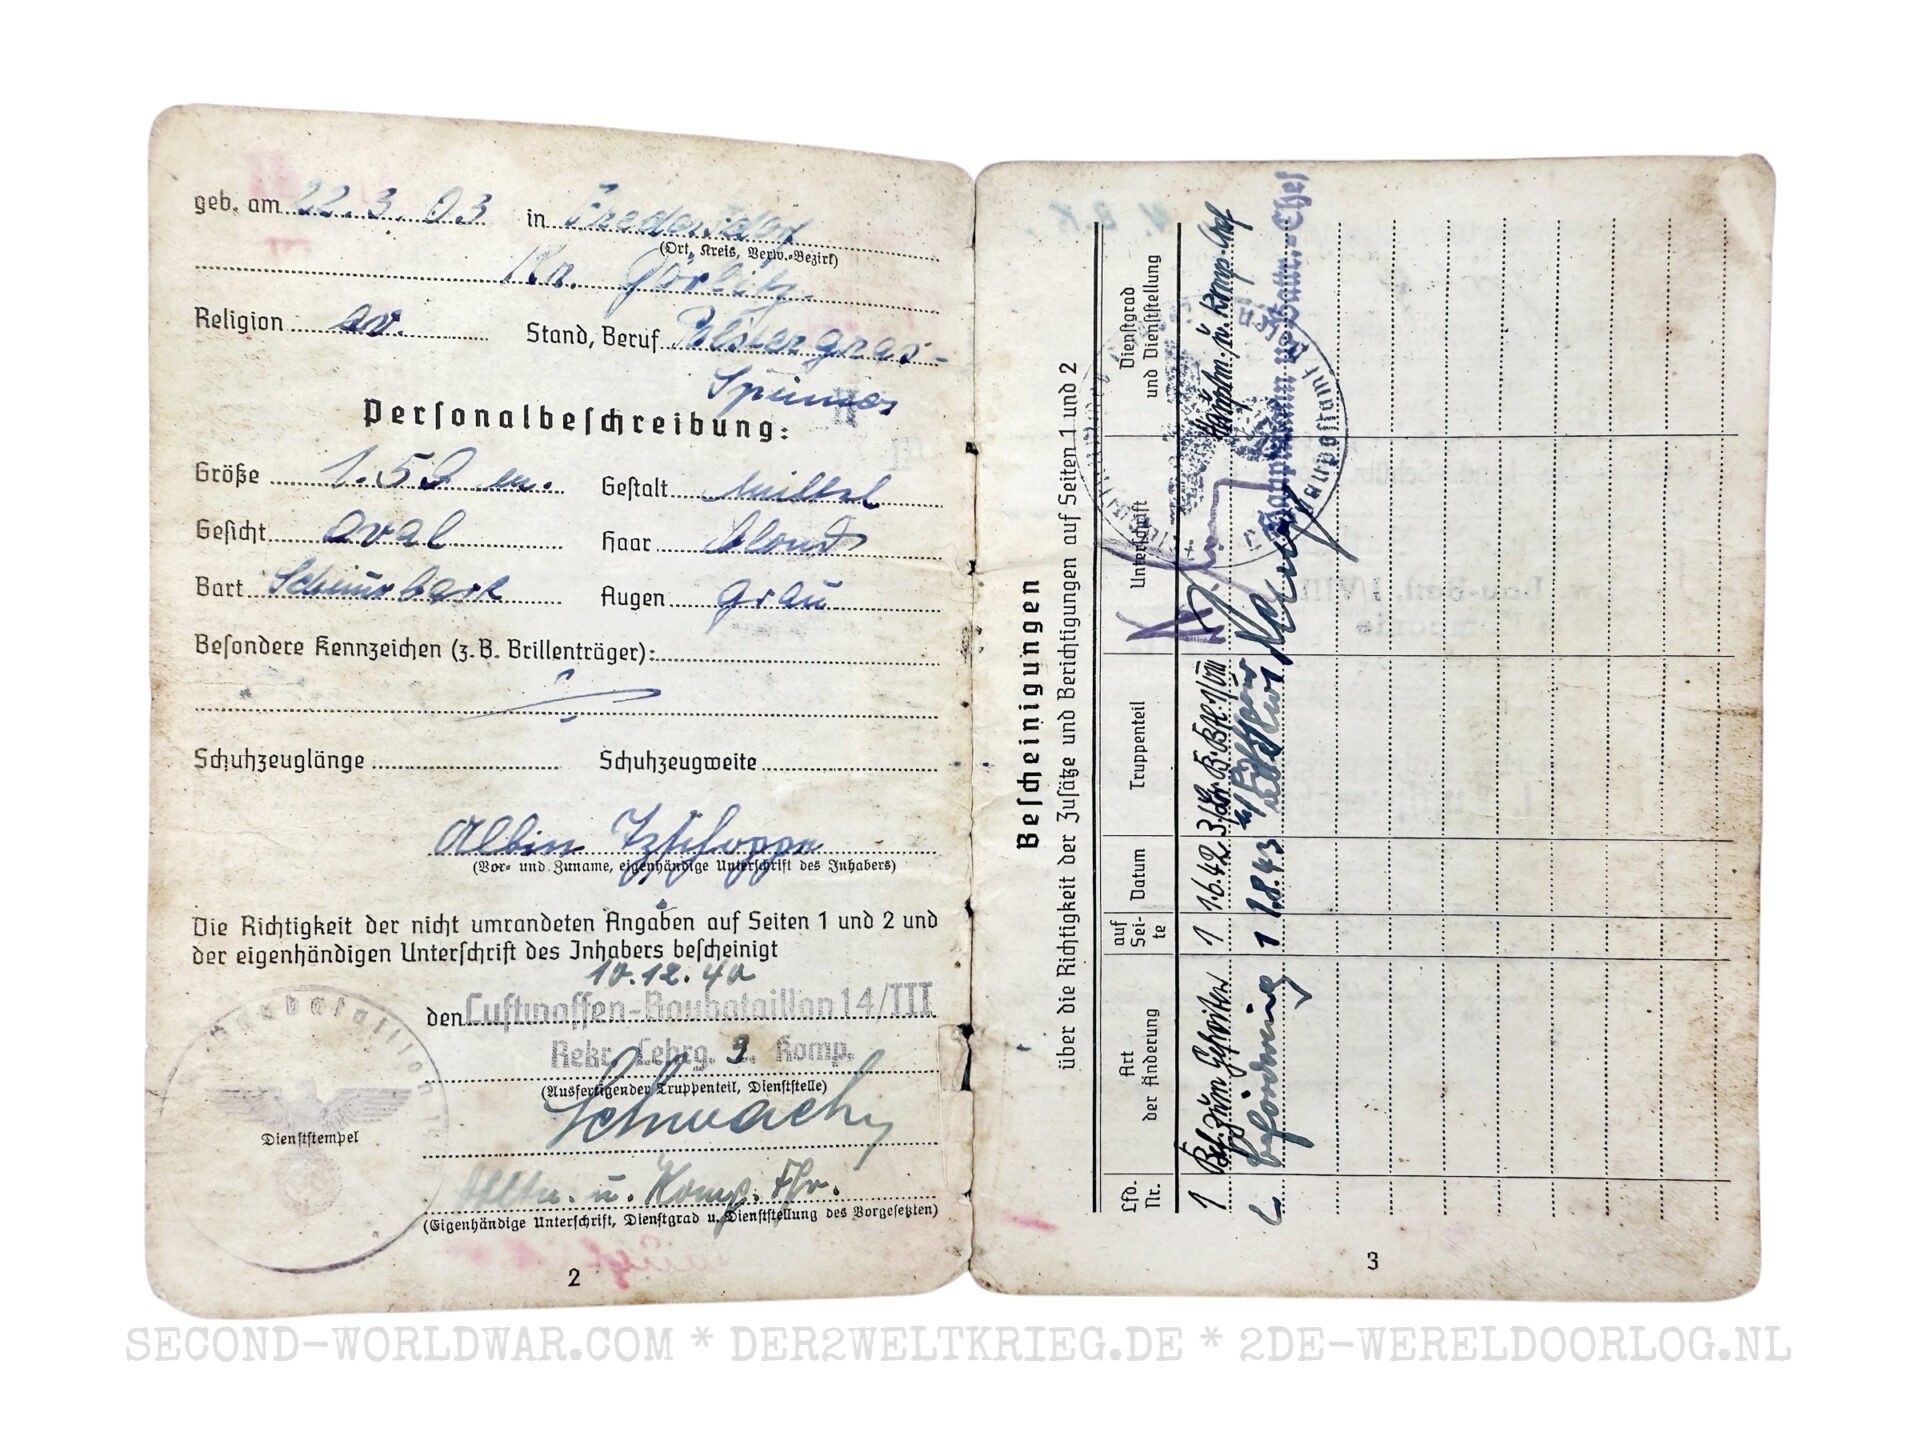 geb. am 22.3.03 in
(Ort, Kreis, Verw.-Bezirk)
Görlitz
Religion ev. Stand, Beruf Polstergras-
Spinner
Personalbeschreibung:
Größe 1.59 m. Gestalt mittel
Gesicht oval Haar blond
Bart Schnurbart Augen grau
Besondere Kennzeichen (z. B. Brillenträger):
Schuhzeuglänge Schuhzeugweite
Albin Tzschoppe
(Vor- und Zuname, eigenhändige Unterschrift des Inhabers)
Die Richtigkeit der nicht umrandeten Angaben auf Seiten 1 und 2 und
der eigenhändigen Unterschrift des Inhabers bescheinigt
10.12.40
den Luftwaffen-Baubataillon 14/III
Rekr. Lehrg. 3. Komp.
(Ausfertigender Truppenteil, Dienststelle)
Dienststempel
u. Komp. Fhr.
(Eigenhändige Unterschrift, Dienstgrad u. Dienststellung des Vorgesetzten)
2
Bescheinigungen
über die Richtigkeit der Zusätze und Berichtigungen auf Seiten 1 und 2
Lfd. Nr. Art der Änderung auf Seite Datum Truppenteil Unterschrift Dienstgrad und Dienststellung
1 Bef. zum Gefreiten 1 1.6.42 Hauptm. u. Komp.-Chef
Beförderung 1 1.8.43 Hauptmann u. Battr.-Chef
3
SECOND-WORLDWAR.COM * DER2WELTKRIEG.DE * 2DE-WERELDOORLOG.NL